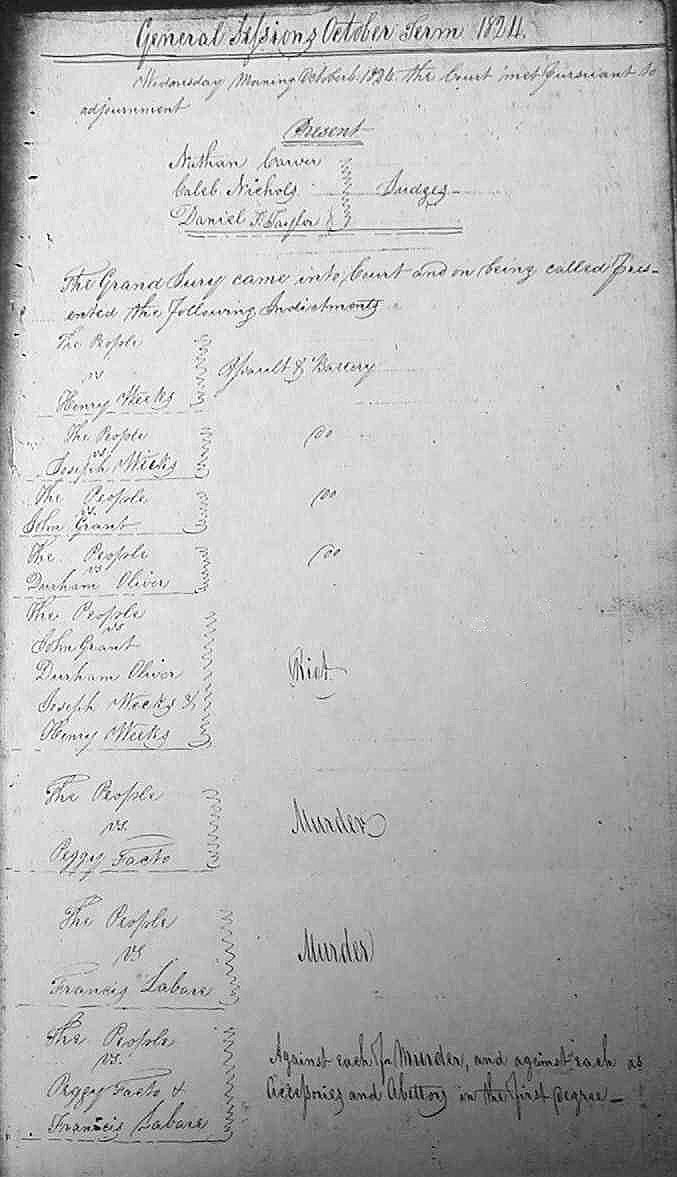 General Sessions October Term 1824.
Wednesday Morning October 6. 1824. the Court met pursuant to
adjournment
Present
Nathan Carver
Caleb Nichols Judges
Daniel T. Taylor
The Grand Jury came into Court and on being called pres-
ented the following Indictments
The People
vs
Henry Weeks
Assault & Battery
The People
vs
Joseph Weeks
Do
The People
vs.
John Grant
Do
The People
vs
Durham Oliver
Do
The People
vs
John Grant
Durham Oliver
Joseph Weeks &
Henry Weeks
Riot
The People
vs.
Peggy Facto
Murder
The People
vs
Francis Labare
Murder
The People
vs.
Peggy Facto &
Francis Labare
Against each for Murder, and against each as
Accessories and Abettors in the first degree